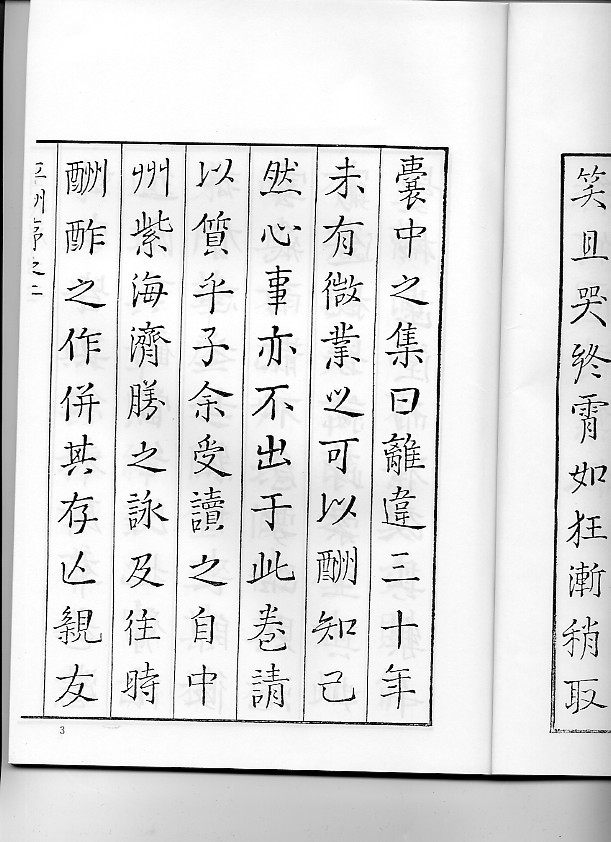 笑且哭終霄如狂漸稍取
囊中之集曰離違三十年
未有微業之可以酬知己
然心事亦不出于此卷請
以質乎子余受讀之自中
州紫海濟勝之詠及往時
酬酢之作併其存亡親友
序之二
3